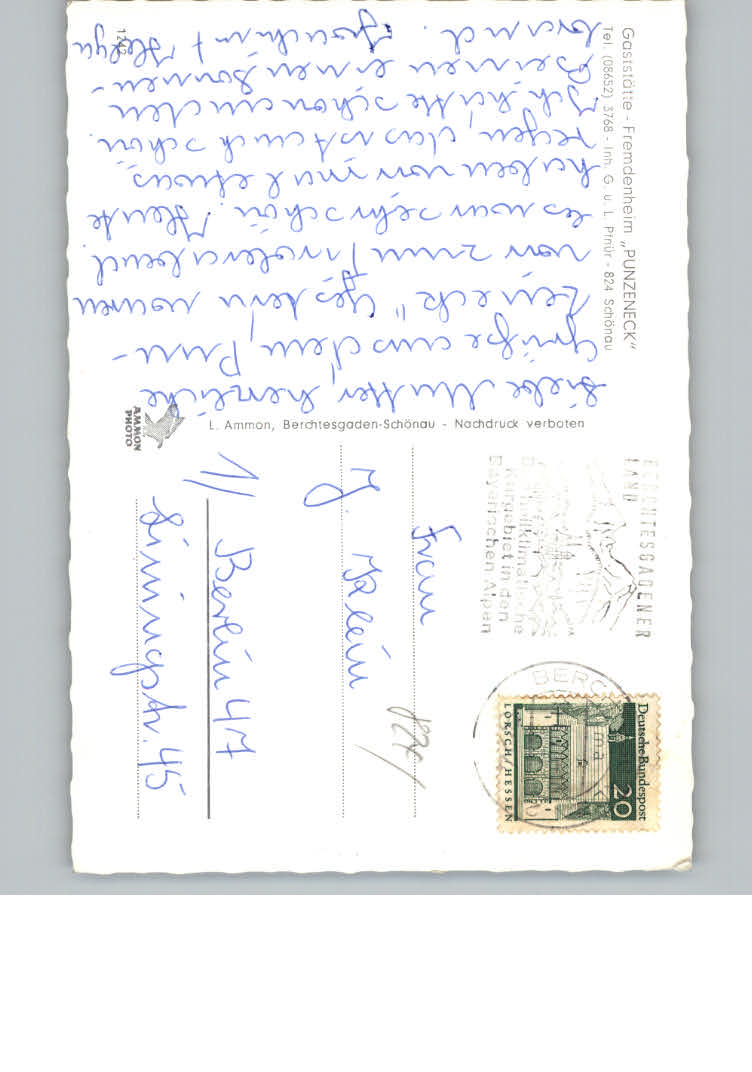 Gaststätte - Fremdenheim „PUNZENECK"
Tel. (08652) 3768 - Inh. G. u. L. Pfnür - 824 Schönau
Liebe Mutter, herzliche
Grüße aus dem Pun-
zeneck". Gestern waren
wir zum Tirolerabend.
es war sehr schön. Heute
haben wir mal etwas
regen, das ist auch schön.
Ich hatte schon an den
Beinen einen Sonnen-
brand. Joachim + Helga
1242
L. Ammon, Berchtesgaden-Schönau - Nachdruck verboten
AMMON
PHOTO
BERCHTESGADENER
LAND
heilklimatische
Kurgebiet in den
Bayerischen Alpen
BERC
Deutsche Bundespost
20
LORSCH/HESSEN
Frau
Klein
1/ Berlin 47
45